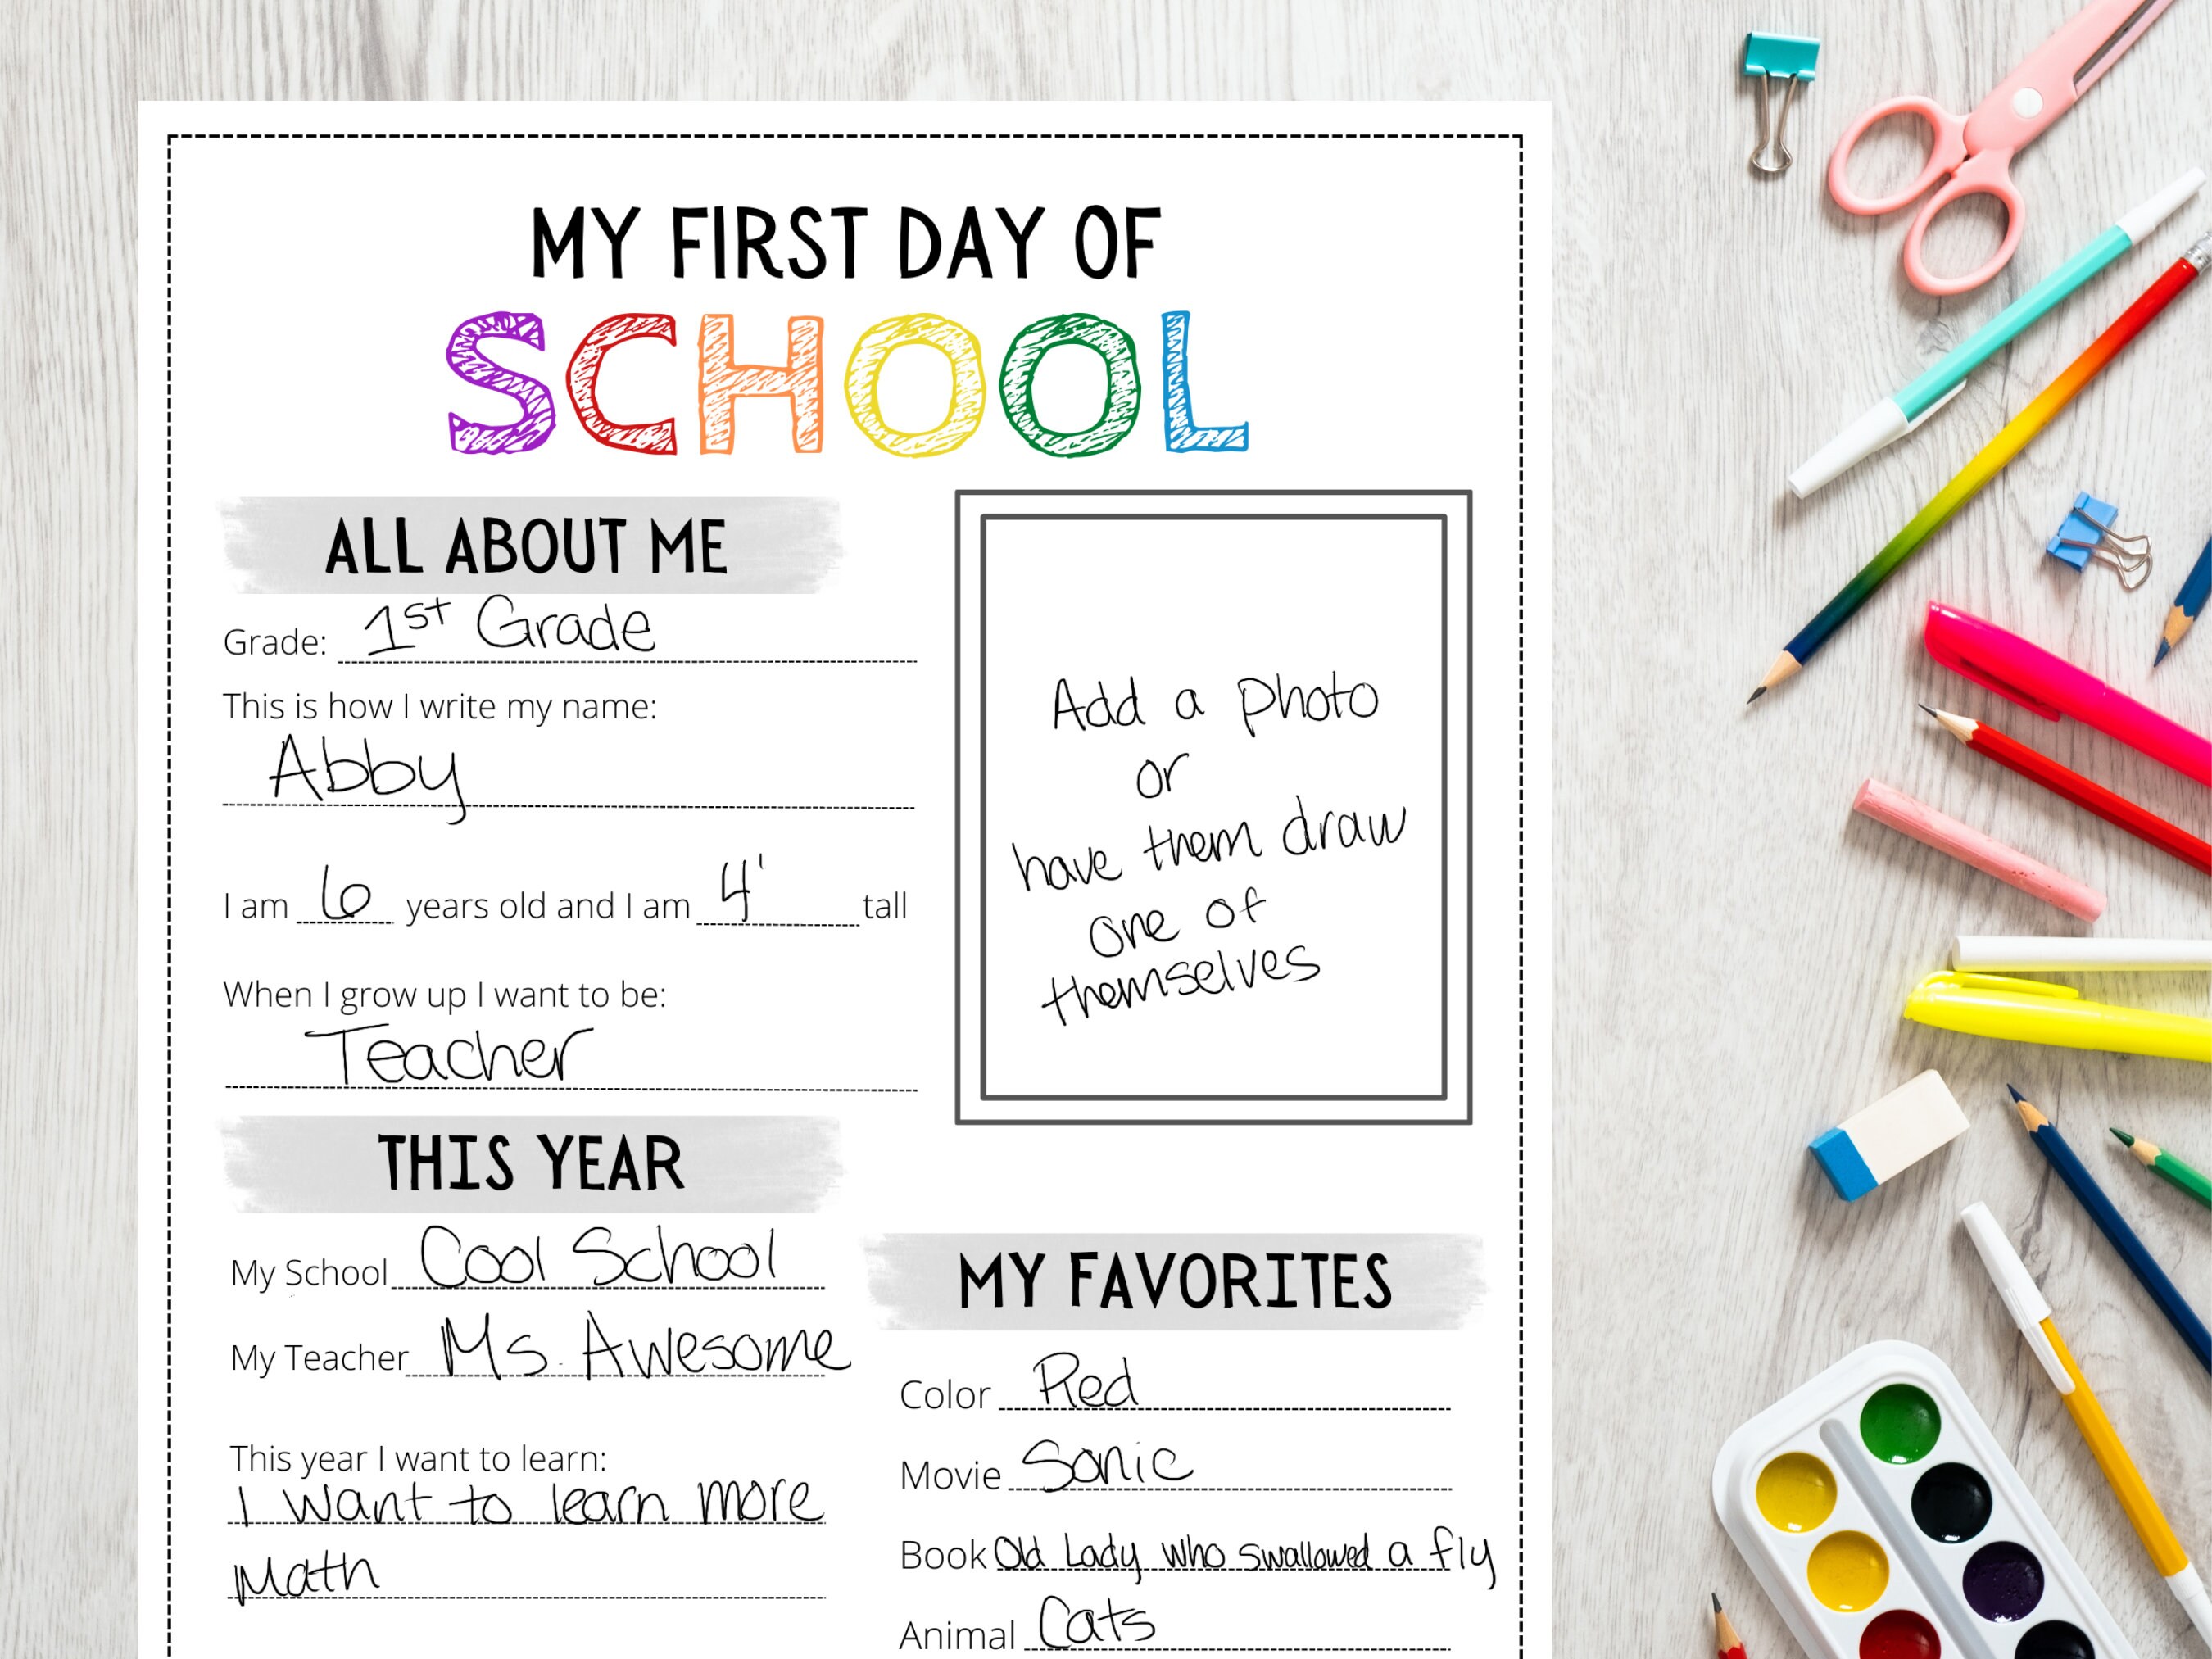 MY FIRST DAY OF
SCHOOL
ALL ABOUT ME
Grade: 1st Grade
This is how I write my name:
Abby
I am 6 years old and I am 4' tall
When I grow up I want to be:
Teacher
Add a photo
or
have them draw
one of
themselves
THIS YEAR
My School Cool School
My Teacher Ms. Awesome
This year I want to learn:
I want to learn more
Math
MY FAVORITES
Color Red
Movie Sonic
Book Old Lady who swallowed a fly
Animal Cats